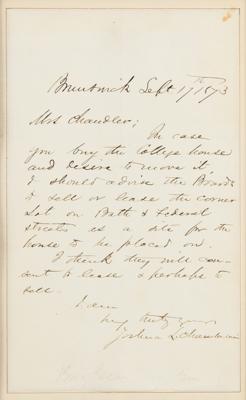 Brunswick Sept 17th 1873
Mrs Chandler;
In case
you buy the College house
and desire to move it,
I should advise the Boards
to sell or lease the corner
Lot on Bath & Federal
streets as a site for the
house to be placed on.
I think they will con-
sent to lease & perhaps to
sell.
I am
very truly yours
Joshua L. Chamberlain